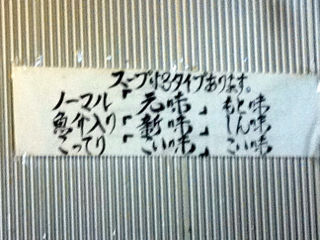 スープは3タイプあります。
ノーマル「元味」もと味
魚介入り「新味」しん味
こってり「こい味」こい味